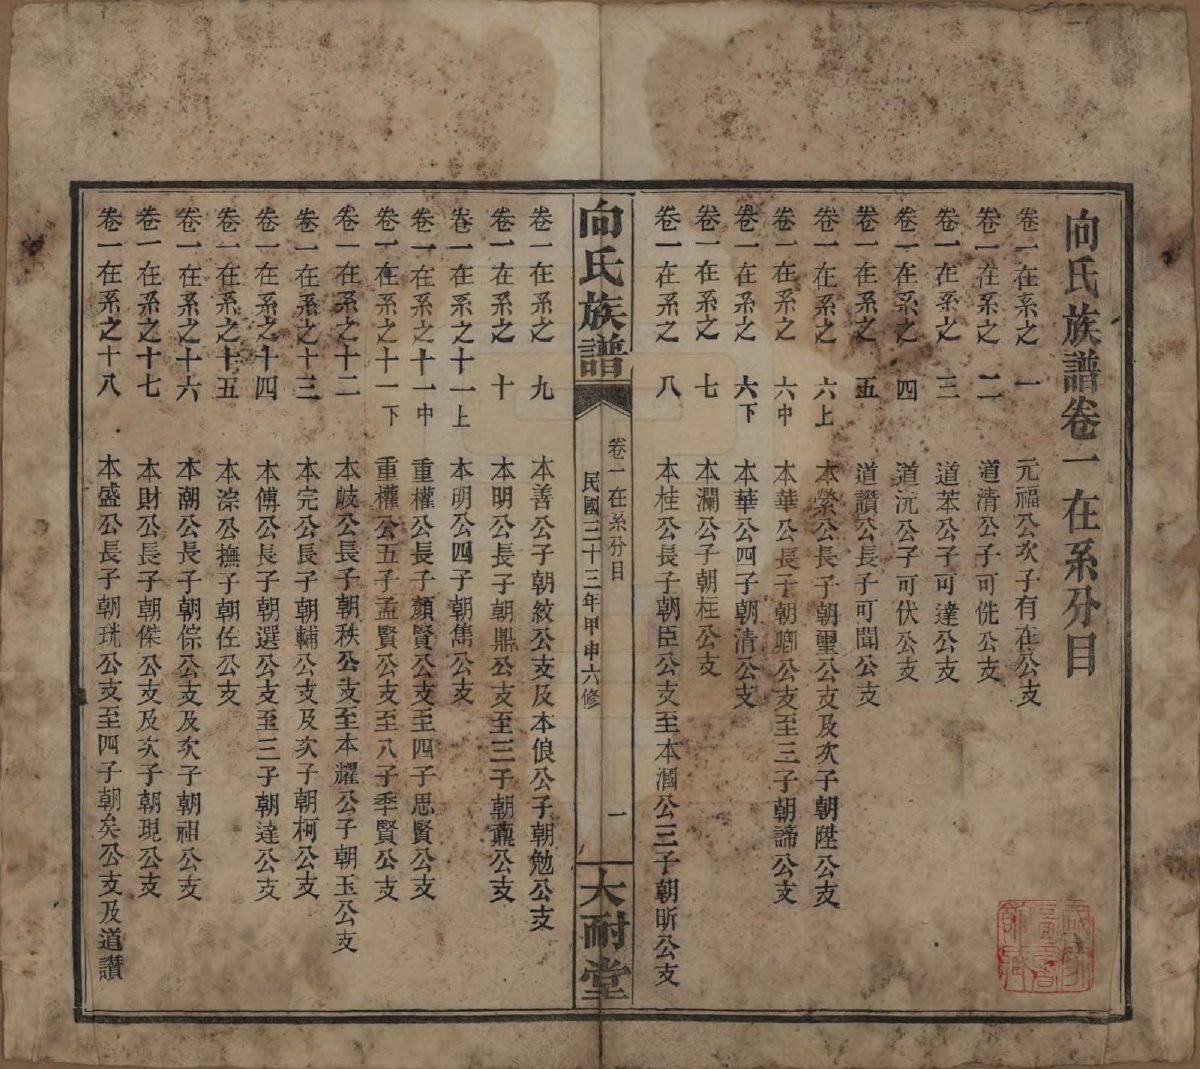 向氏族譜卷一在系分目
卷一在系之 一 元福公次子有在公支
卷一在系之 二 道清公子可侁公支
卷一在系之 三 道苯公子可達公支
卷一在系之 四 道沅公子可伏公支
卷一在系之 五 道讚公長子可聞公支
卷一在系之 六上 本縈公長子朝璽公支及次子朝陞公支
卷一在系之 六中 本華公長子朝卿公支至三子朝諦公支
卷一在系之 六下 本華公四子朝清公支
卷一在系之 七 本瀾公子朝柱公支
卷一在系之 八 本桂公長子朝臣公支至本澗公三子朝昕公支
向氏族譜 卷一在系分目 一
民國三十三年甲申六修
大耐堂
卷一在系之 九 本善公子朝紋公支及本俍公子朝勉公支
卷一在系之 十 本明公長子朝鼎公支至三子朝鼒公支
卷一在系之十一上 本明公四子朝雋公支
卷一在系之十一中 重權公長子顏賢公支至四子思賢公支
卷一在系之十一下 重權公五子孟賢公支至八子季賢公支
卷一在系之十二 本岐公長子朝秩公支至本耀公子朝玉公支
卷一在系之十三 本完公長子朝輔公支及次子朝柯公支
卷一在系之十四 本傅公長子朝選公支至三子朝達公支
卷一在系之十五 本淙公撫子朝任公支
卷一在系之十六 本潮公長子朝倧公支及次子朝祖公支
卷一在系之十七 本財公長子朝傑公支及次子朝現公支
卷一在系之十八 本盛公長子朝珖公支至四子朝矣公支及道讚